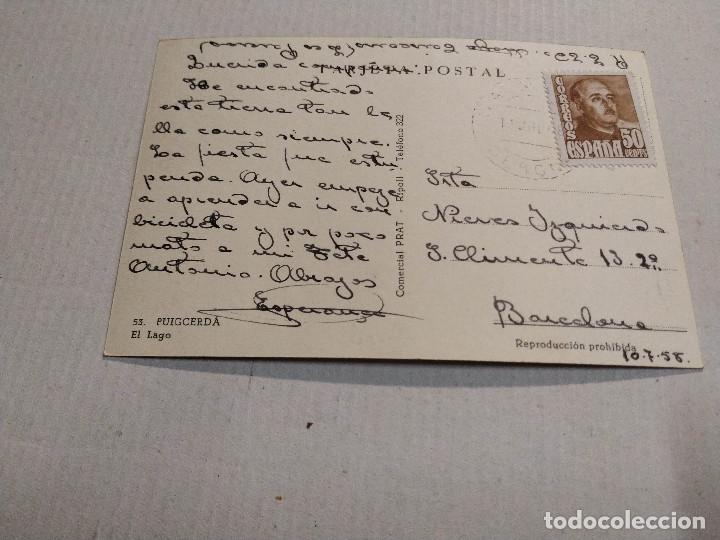 TARJETA POSTAL
Querida compañera:
He encontrado
esta tierra tan be
lla como siempre.
La fiesta fue estu
penda. Ayer empeze
a aprender a ir con
bicicleta y por poco
mato a mi
Antonio. Abrazos
Esperanza
53. PUIGCERDÁ
El Lago
Comercial PRAT - Ripoll - Teléfono 322
CORREOS
ESPAÑA
50
CENTS
Srta
Nieves Izquierdo
S. Climente 13 2º
Barcelona
Reproducción prohibida
10.7.55.
todocoleccion.net